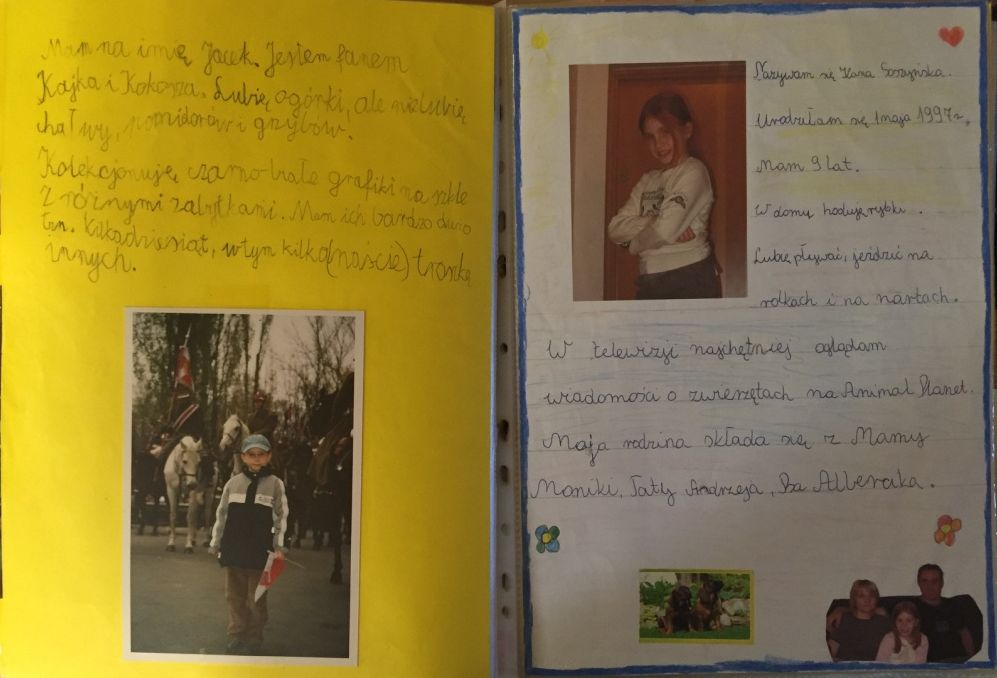 Mam na imię Jacek. Jestem fanem
Kajka i Kokosza. Lubię ogórki, ale nie lubię
chałwy, pomidorów i grzybów.
Kolekcjonuję czarno-białe grafiki na szkle
z różnymi zabytkami. Mam ich bardzo dużo
tzn. kilkadziesiąt, w tym kilka(naście) troszkę
innych.
Nazywam się Hana
Urodziłam się 1 maja 1997r.
Mam 9 lat.
W domu hoduję rybki.
Lubię pływać, jeździć na
rolkach i na nartach.
W telewizji najchętniej oglądam
wiadomości o zwierzętach na Animal Planet.
Moja rodzina składa się z Mamy
Moniki, Taty Andrzeja,